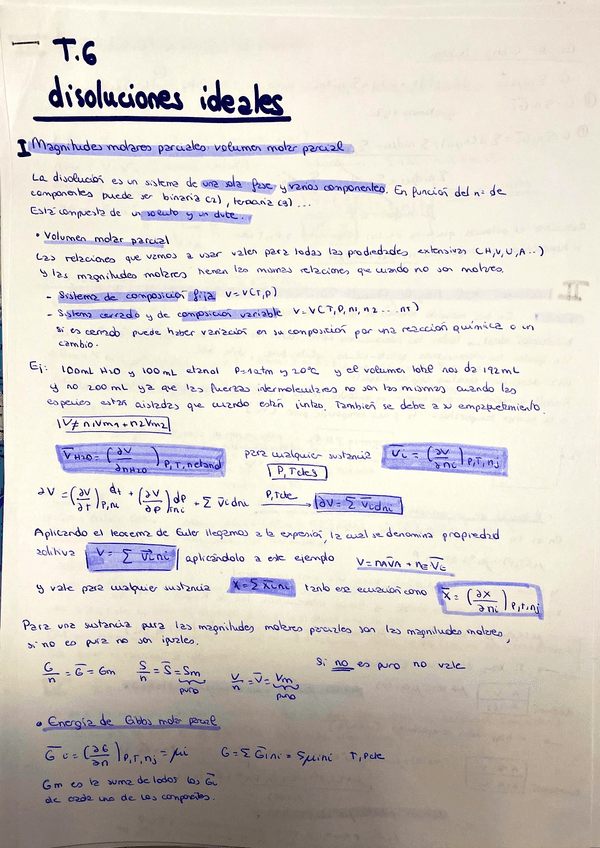 T.6
disoluciones ideales
I Magnitudes molares parciales: volumen molar parcial
La disolución es un sistema de una sola fase y varios componentes. En función del nº de
componentes puede ser binaria (2), ternaria (3) ...
Está compuesta de un soluto y un dvte.
• Volumen molar parcial
Las relaciones que vamos a usar valen para todas las propiedades extensivas (H, V, U, A...)
y las magnitudes molares tienen las mismas relaciones que cuando no son molares.
- Sistema de composición fija V=V(T,P)
- Sistema cerrado y de composición variable V=V(T,P,n1,n2 ... nr)
Si es cerrado puede haber variación en su composición por una reacción química o un
cambio.
Ej: 100mL H2O y 100mL etanol P=1atm y 20ºC y el volumen total nos da 192mL
y no 200mL ya que las fuerzas intermoleculares no son las mismas cuando las
especies están aisladas que cuando están juntas. También se debe a su empaquetamiento.
V≠n1Vm1+n2Vm2
V̄H2O = (∂V/∂nH2O)P,T,netanol para cualquier sustancia V̄i = (∂V/∂ni)P,T,nj
P,T ctes
∂V = (∂V/∂T)P,ni dT + (∂V/∂P)T,ni dP + Σ V̄i dni P,T cte → ∂V = Σ V̄i dni
Aplicando el teorema de Euler llegamos a la expresión, la cual se denomina propiedad
aditiva V = Σ V̄i ni aplicándolo a este ejemplo V = nA V̄A + nE V̄E
y vale para cualquier sustancia X = Σ X̄i ni tanto esa ecuación como X̄ = (∂X/∂ni)P,T,nj
Para una sustancia pura las magnitudes molares parciales son las magnitudes molares,
si no es pura no son iguales.
G/n = Ḡ = Gm S/n = S̄ = Sm puro V/n = V̄ = Vm puro Si no es puro no vale
• Energía de Gibbs molar parcial
Ḡi = (∂G/∂n)P,T,nj = μi G = Σ Ḡi ni = Σ μi ni T,P cte
Gm es la suma de todos los Ḡ
de cada uno de los componentes.